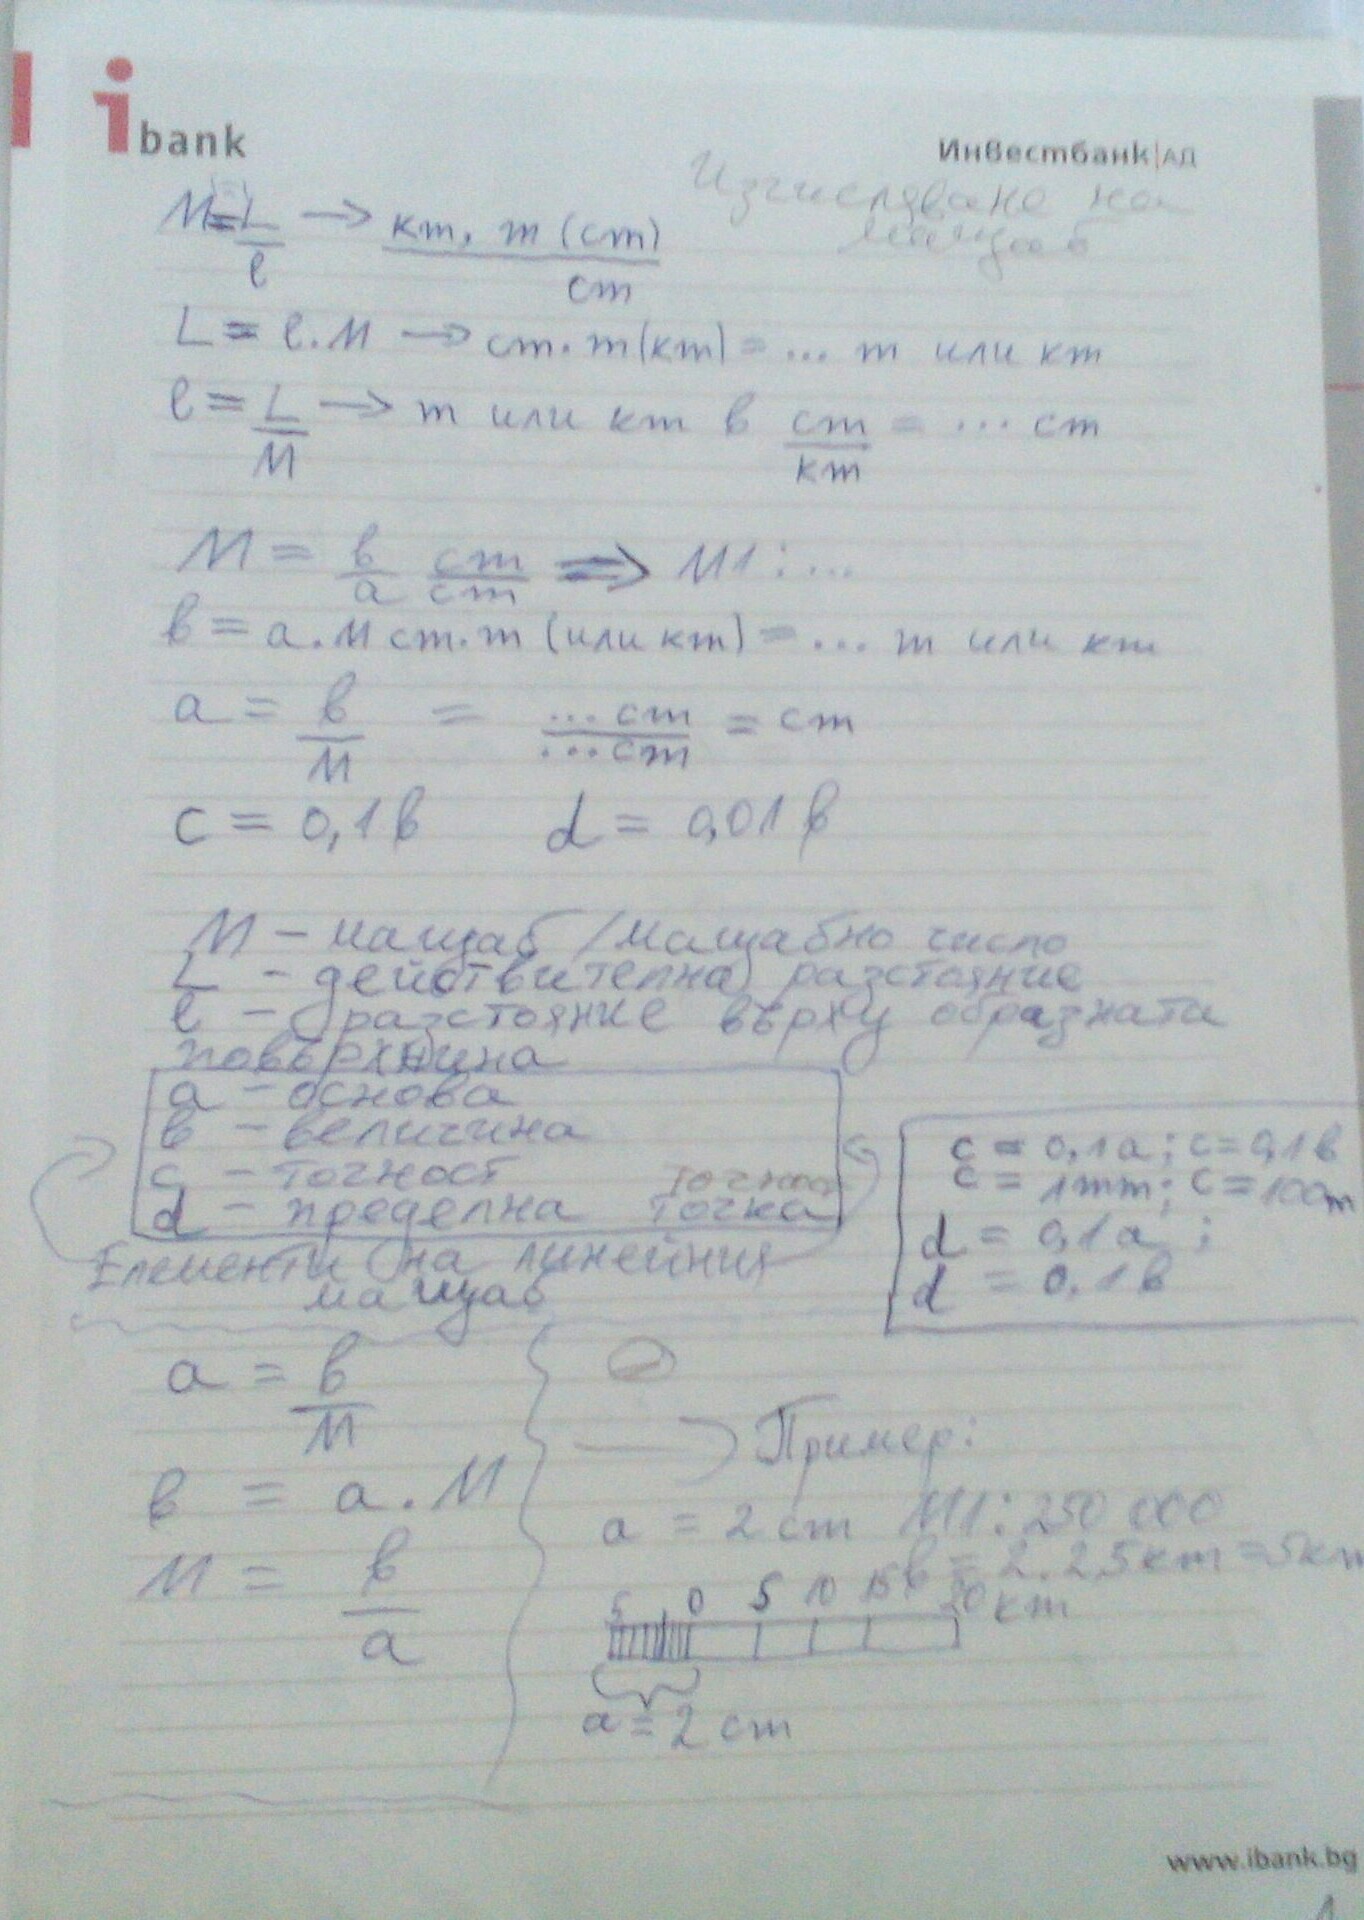 ibank
ИнвестбанкIАД
Изчисляване на
мащаб
M = L/l → km, m (cm)/cm
L = l.M → cm.m(km) = ... m или km
l = L/M → m или km в cm/km = ... cm
M = в/a cm/cm ⇒ M1:...
в = a.M cm.m (или km) = ... m или km
a = в/M = ...cm/...cm = cm
c = 0,1в d = 0,01в
M - мащаб /мащабно число
L - действителна разстояние
l - разстояние върху образната
повърхнина
a - основа
в - величина
c - точност
d - пределна точка
Елементи на линейния
мащаб
c = 0,1a; c = 0,1в
c = 1mm; c = 100m
d = 0,1a ;
d = 0,1в
a = в/M
в = a.M
M = в/a
Пример:
a = 2cm M1:250 000
в = 2.2,5km = 5km
5 0 5 10 15 20 km
a = 2 cm
www.ibank.bg
1